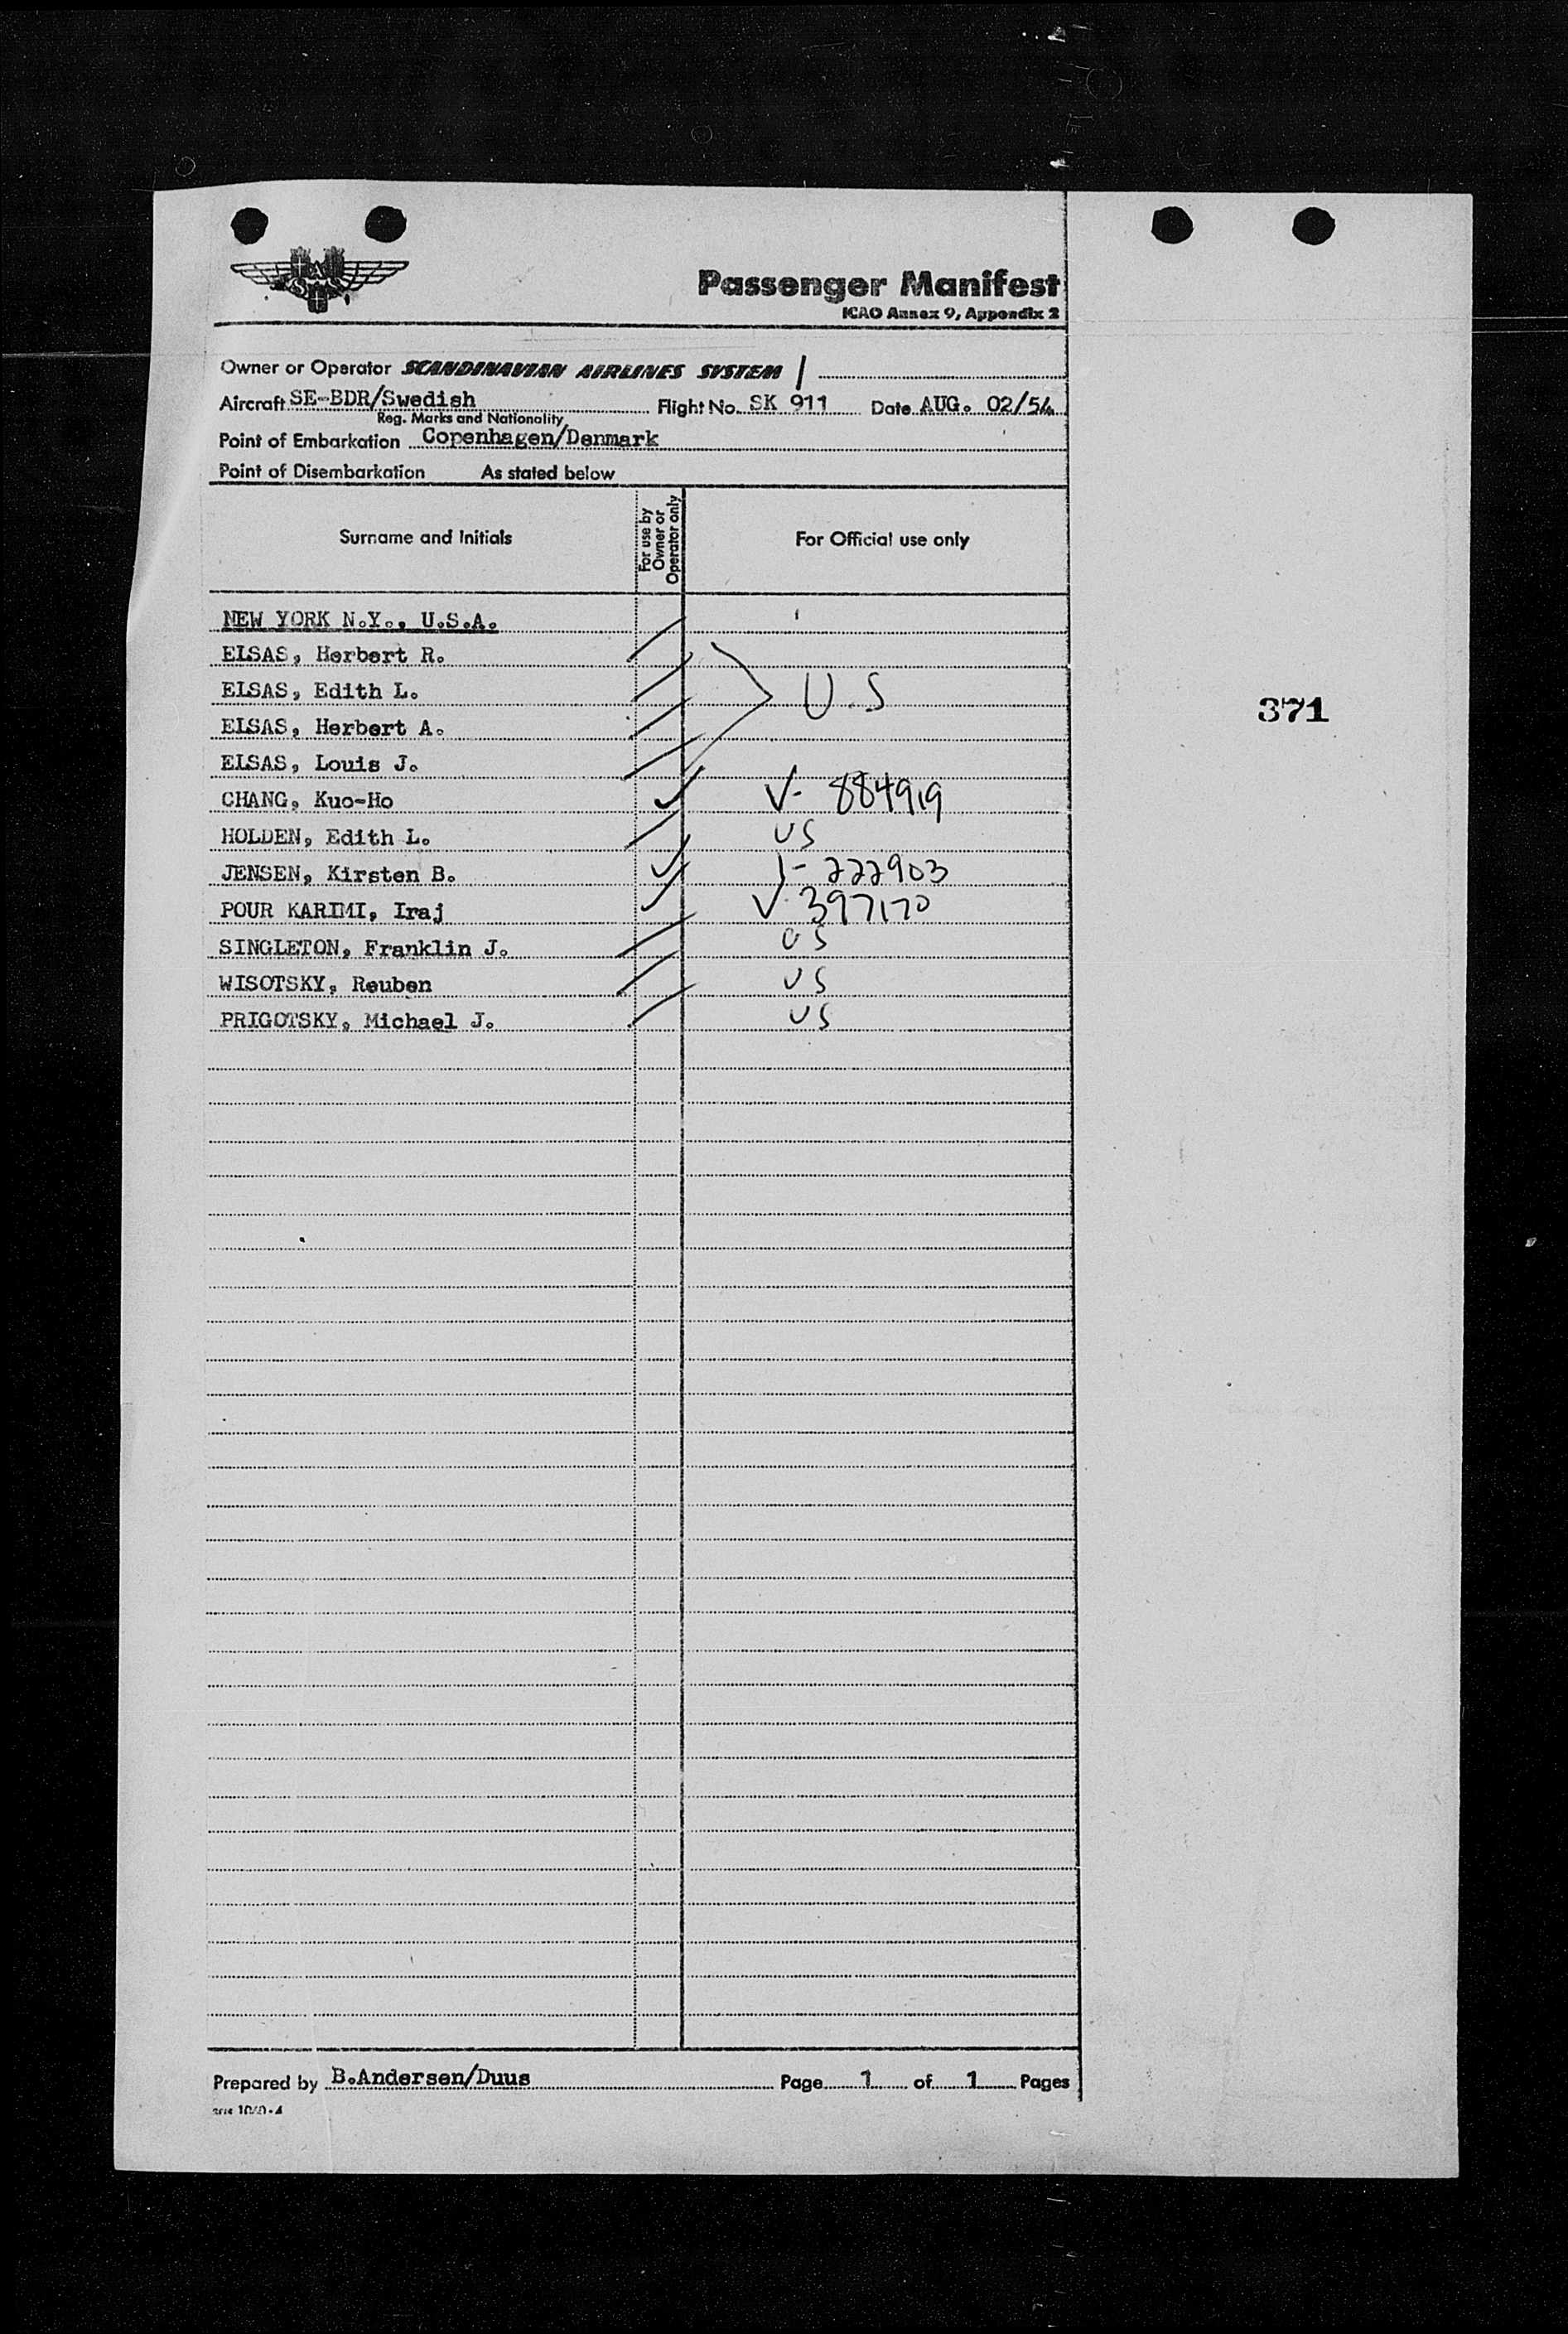 SAS
Passenger Manifest
ICAO Annex 9, Appendix 2
Owner or Operator SCANDINAVIAN AIRLINES SYSTEM
Aircraft SE-BDR/Swedish Flight No. SK 911 Date AUG. 02/54
Reg. Marks and Nationality
Point of Embarkation Copenhagen/Denmark
Point of Disembarkation As stated below
Surname and Initials For use by Owner or Operator only For Official use only
NEW YORK N.Y., U.S.A.
ELSAS, Herbert R.
ELSAS, Edith L. U.S
ELSAS, Herbert A.
371
ELSAS, Louis J.
CHANG, Kuo-Ho V- 884919
HOLDEN, Edith L. US
JENSEN, Kirsten B. - 222903
POUR KARIMI, Iraj V- 397170
SINGLETON, Franklin J. US
WISOTSKY, Reuben US
PRIGOTSKY, Michael J. US
Prepared by B.Andersen/Duus Page 1 of 1 Pages